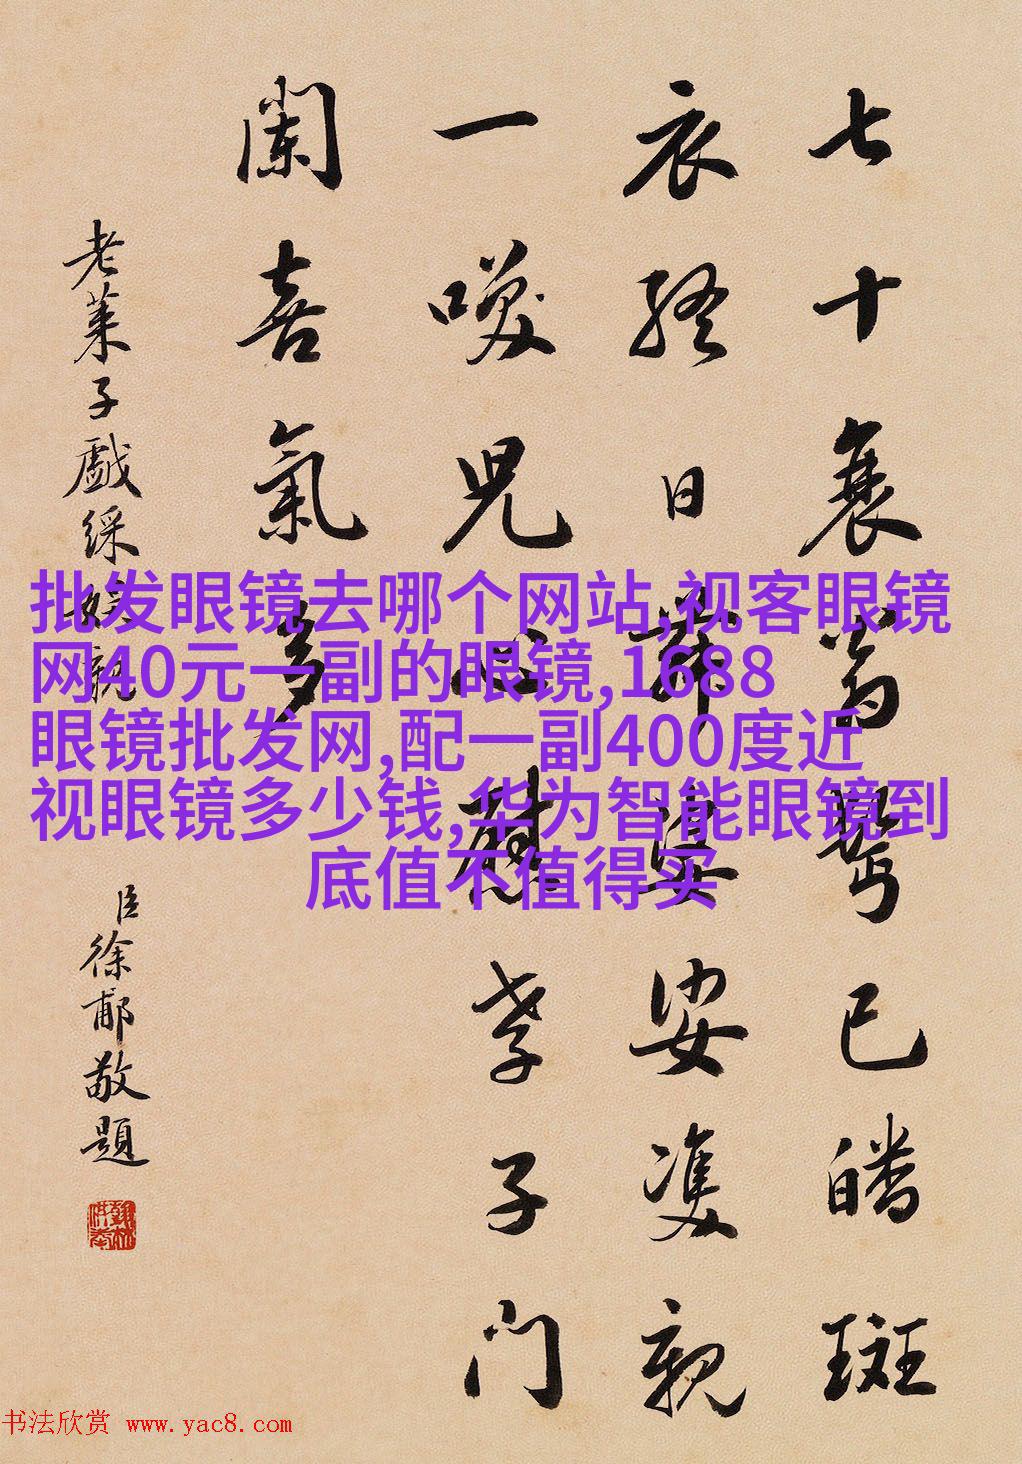 七十衰翁鬢已皤斑
衣終日舞婆娑雙親
一喚兒心慰孝子門
闌喜氣多
老萊子戲綵娛親
臣徐郙敬題
批发眼镜去哪个网站,视客眼镜
网40元一副的眼镜,1688
眼镜批发网,配一副400度近
视眼镜多少钱,华为智能眼镜到
底值不值得买
书法欣赏 www.yac8.com